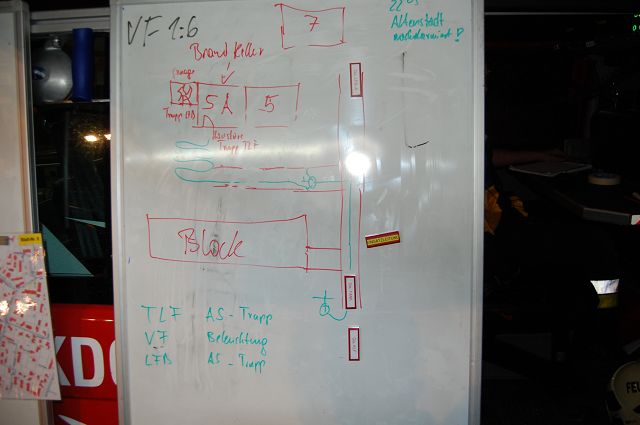 VF 1:6
7
2203
Altenstadt
nachalarmiert!
Brand Keller
Garage
5A
5
Trupp LFB
Haustüre
Trupp TLF
Block
TLF AS-Trupp
VF Beleuchtung
LFB AS-Trupp
KDO